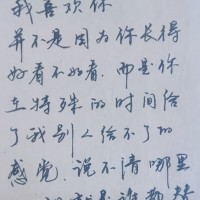 我喜欢你
并不是因为你长得
好看不好看,而是你
在特殊的时间给
了我别人给不了的
感觉,说不清哪里